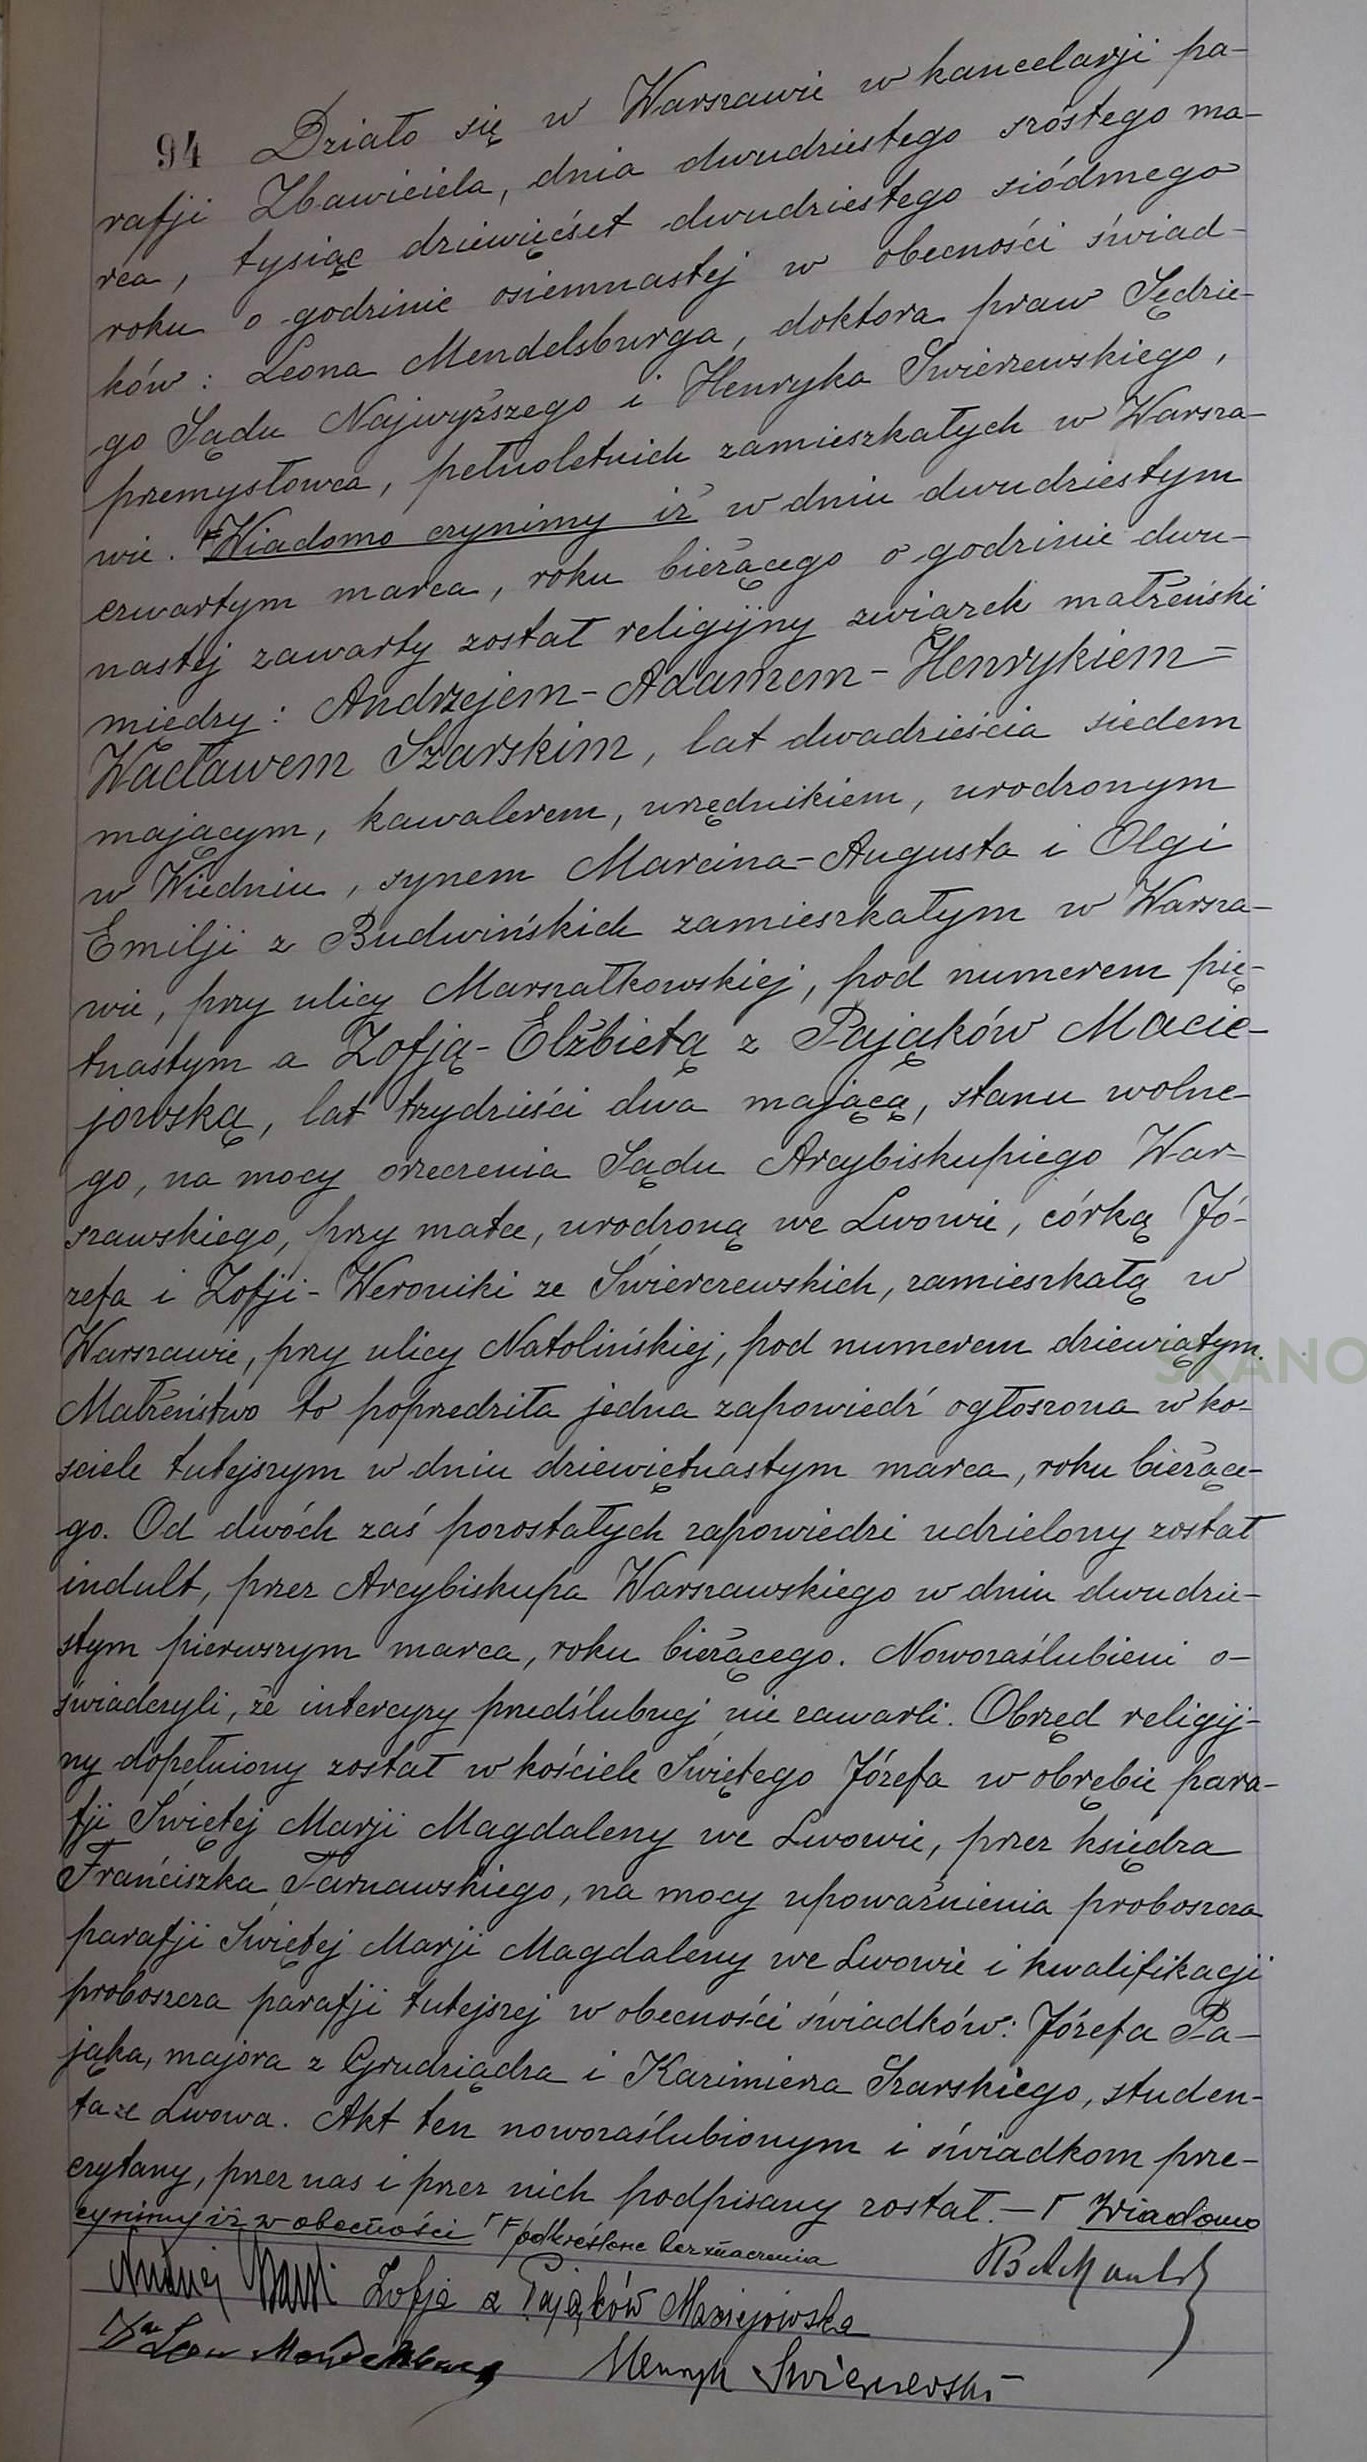 94 Działo się w Warszawie w kancelarji pa-
rafji Zbawiciela, dnia dwudziestego szóstego ma-
rca, tysiąc dziewięćset dwudziestego siódmego
roku o godzinie osiemnastej w obecności świad-
ków: Leona Mendelsburga, doktora praw Sędzie-
go Sądu Najwyższego i Henryka Swierzewskiego,
przemysłowca, pełnoletnich zamieszkałych w Warsza-
wie. Wiadomo czynimy iż w dniu dwudziestym
czwartym marca, roku bieżącego o godzinie dwu-
nastej zawarty został religijny związek małżeński
miedzy: Andrzejem-Adamem-Henrykiem-
Wacławem Szarskim, lat dwadzieścia siedem
mającym, kawalerem, urzędnikiem, urodzonym
w Wiedniu, synem Marcina-Augusta i Olgi
Emilji z Budwińskich zamieszkałym w Warsza-
wie, przy ulicy Marszałkowskiej, pod numerem pię-
tnastym a Zofją-Elżbietą z Pająków Macie-
jowską, lat trzydzieści dwa mającą, stanu wolne-
go, na mocy orzeczenia Sądu Arcybiskupiego War-
szawskiego, przy matce, urodzoną we Lwowie, córką Jó-
zefa i Zofji-Weroniki ze Świerczewskich, zamieszkałą w
Warszawie, przy ulicy Natolińskiej, pod numerem dziewiątym.
Małżeństwo to poprzedziła jedna zapowiedź ogłoszona w ko-
sciele tutejszym w dniu dziewiętnastym marca, roku bieżące-
go. Od dwóch zaś pozostałych zapowiedzi udzielony został
indult, przez Arcybiskupa Warszawskiego w dniu dwudzie-
stym pierwszym marca, roku bieżącego. Nowozaślubieni o-
świadczyli, że intercyzy przedślubnej nie zawarli. Obrzęd religij-
ny dopełniony został w kościele Świętego Józefa w obrębie para-
fji Świętej Marji Magdaleny we Lwowie, przez księdza
Franciszka Tarnawskiego, na mocy upoważnienia proboszcza
parafji Świętej Marji Magdaleny we Lwowie i kwalifikacji
proboszcza parafji tutejszej w obecności świadków: Józefa Pa-
jąka, majora z Grudziądza i Kazimierza Szarskiego, studen-
ta ze Lwowa. Akt ten nowozaślubionym i świadkom prze-
czytany, przez nas i przez nich podpisany został. — Γ Wiadomo
czynimy iż w obecności podkreślone bez znaczenia
Andrzej Szarski Zofja z Pająków Maciejowska
Leon Mendelsburg Henryk Swierzewski
SKANO